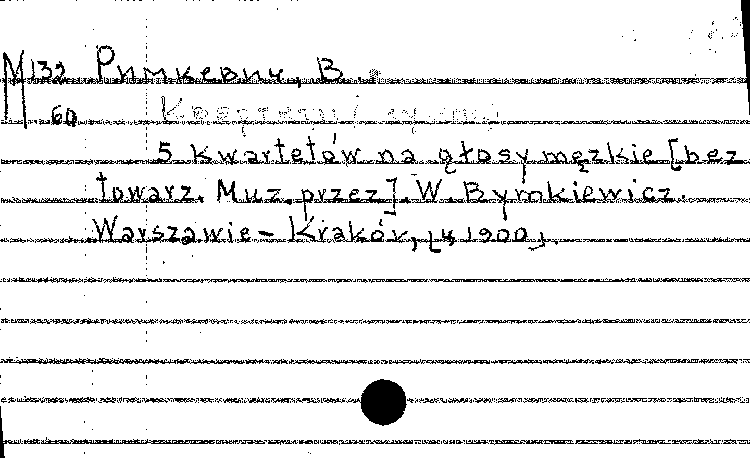 М 132 Римкевич, В.
60
5 kwartetów na głosy męzkie [bez
towarz. Muz. przez] W. Rymkiewicz.
Warszawie – Kraków, 1900